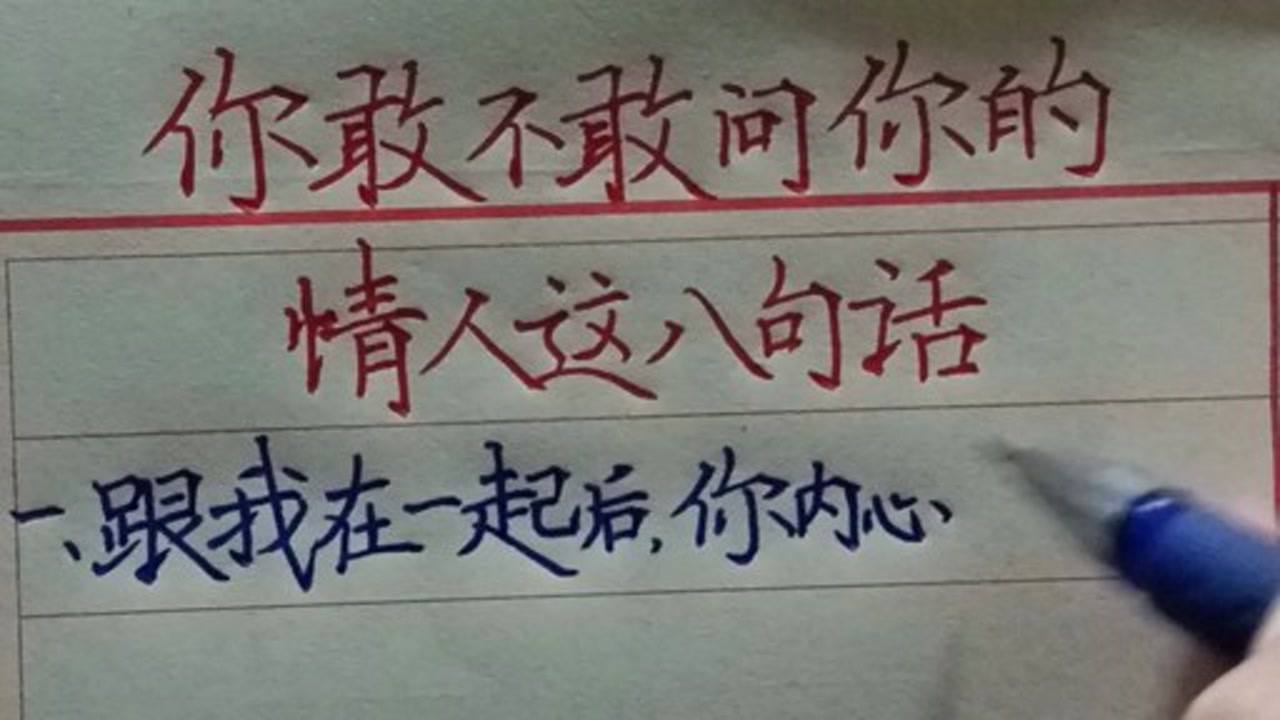 你敢不敢问你的
情人这八句话
一、跟我在一起后,你内心